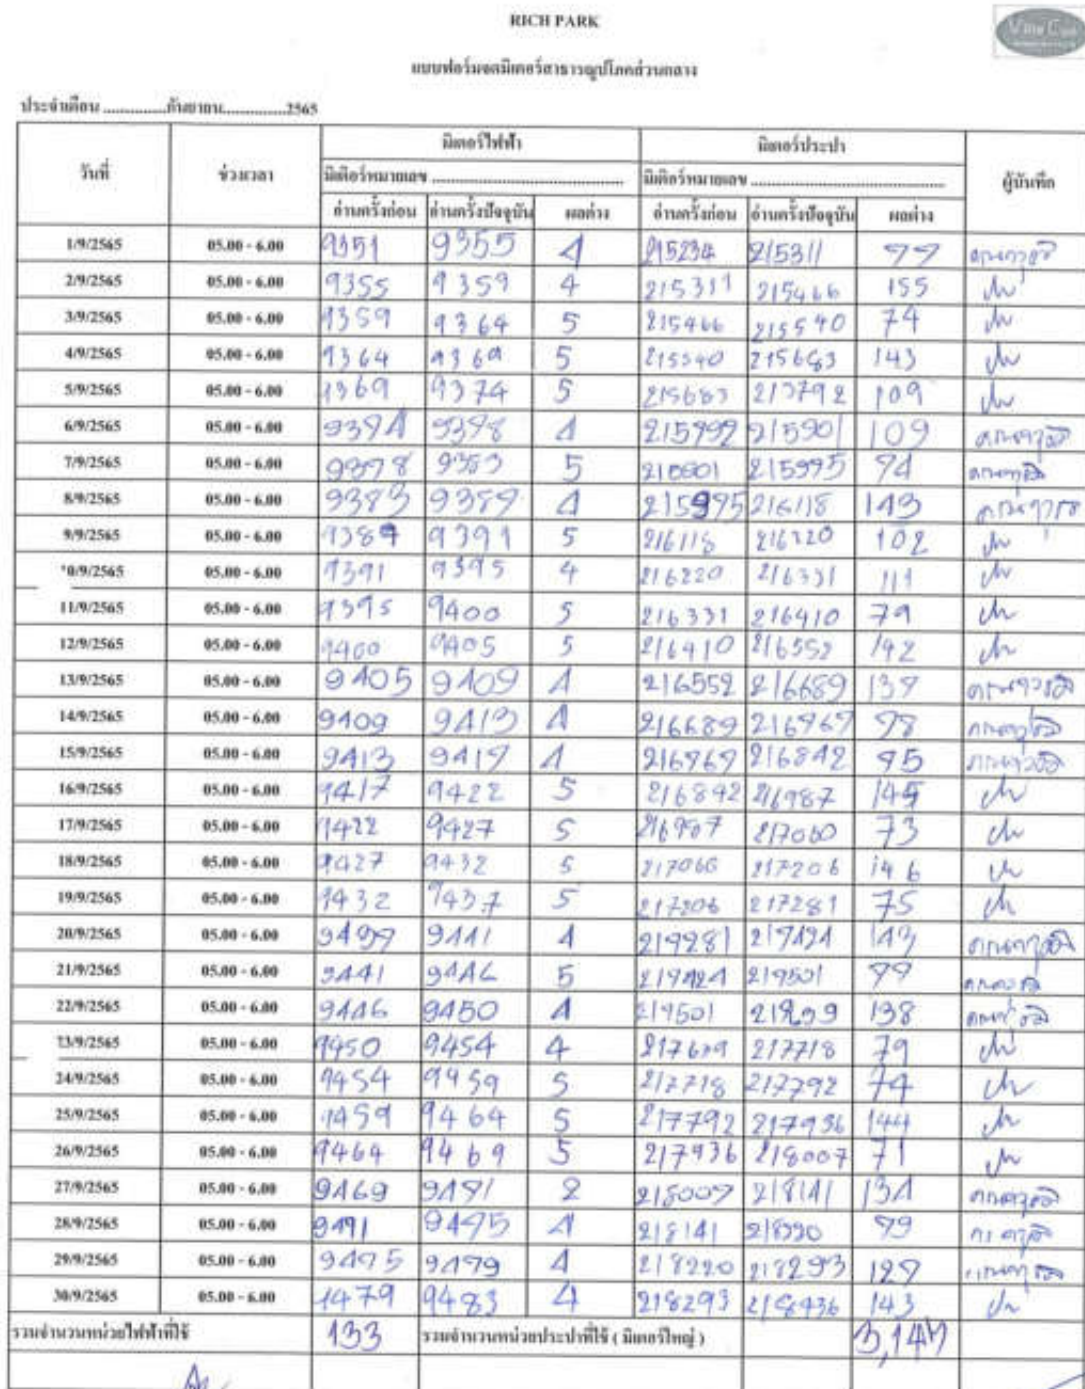 RICH PARK
แบบฟอร์มจดมิเตอร์สาธารณูปโภคส่วนกลาง
ประจำเดือน ..............กันยายน..............2565
วันที่ ช่วงเวลา มิเตอร์ไฟฟ้า มิเตอร์ประปา ผู้บันทึก
มิเตอร์หมายเลข .......... มิเตอร์หมายเลข ..........
อ่านครั้งก่อน อ่านครั้งปัจจุบัน ผลต่าง อ่านครั้งก่อน อ่านครั้งปัจจุบัน ผลต่าง
1/9/2565 05.00 - 6.00 9351 9355 4 215234 215311 77
2/9/2565 05.00 - 6.00 9355 9359 4 215311 215466 155
3/9/2565 05.00 - 6.00 9359 9364 5 215466 215540 74
4/9/2565 05.00 - 6.00 9364 9369 5 215540 215683 143
5/9/2565 05.00 - 6.00 9369 9374 5 215683 215792 109
6/9/2565 05.00 - 6.00 9374 9378 4 215792 215901 109
7/9/2565 05.00 - 6.00 9378 9383 5 215995 94
8/9/2565 05.00 - 6.00 9383 9387 4 215995 216118 143
9/9/2565 05.00 - 6.00 9387 9391 5 216118 216220 102
10/9/2565 05.00 - 6.00 9391 9395 4 216220 216331 111
11/9/2565 05.00 - 6.00 9395 9400 5 216331 216410 79
12/9/2565 05.00 - 6.00 9400 9405 5 216410 216552 142
13/9/2565 05.00 - 6.00 9405 9409 4 216552 216689 137
14/9/2565 05.00 - 6.00 9409 9413 4 216689 216767 78
15/9/2565 05.00 - 6.00 9413 9417 4 216767 216842 75
16/9/2565 05.00 - 6.00 9417 9422 5 216842 216987 145
17/9/2565 05.00 - 6.00 9422 9427 5 216987 217060 73
18/9/2565 05.00 - 6.00 9427 9432 5 217060 217206 146
19/9/2565 05.00 - 6.00 9432 9437 5 217206 217281 75
20/9/2565 05.00 - 6.00 9437 9441 4 217281 217424 143
21/9/2565 05.00 - 6.00 9441 9446 5 217424 217501 77
22/9/2565 05.00 - 6.00 9446 9450 4 217501 138
23/9/2565 05.00 - 6.00 9450 9454 4 217639 217718 79
24/9/2565 05.00 - 6.00 9454 9459 5 217718 217792 74
25/9/2565 05.00 - 6.00 9459 9464 5 217792 217936 144
26/9/2565 05.00 - 6.00 9464 9469 5 217936 218007 71
27/9/2565 05.00 - 6.00 9469 9471 2 218007 218141 134
28/9/2565 05.00 - 6.00 9471 9475 4 218141 79
29/9/2565 05.00 - 6.00 9475 9479 4 218220 218293 127
30/9/2565 05.00 - 6.00 9479 9483 4 218293 218436 143
รวมจำนวนหน่วยไฟฟ้าที่ใช้ 133 รวมจำนวนหน่วยประปาที่ใช้ ( มิเตอร์ใหญ่ ) 3,147